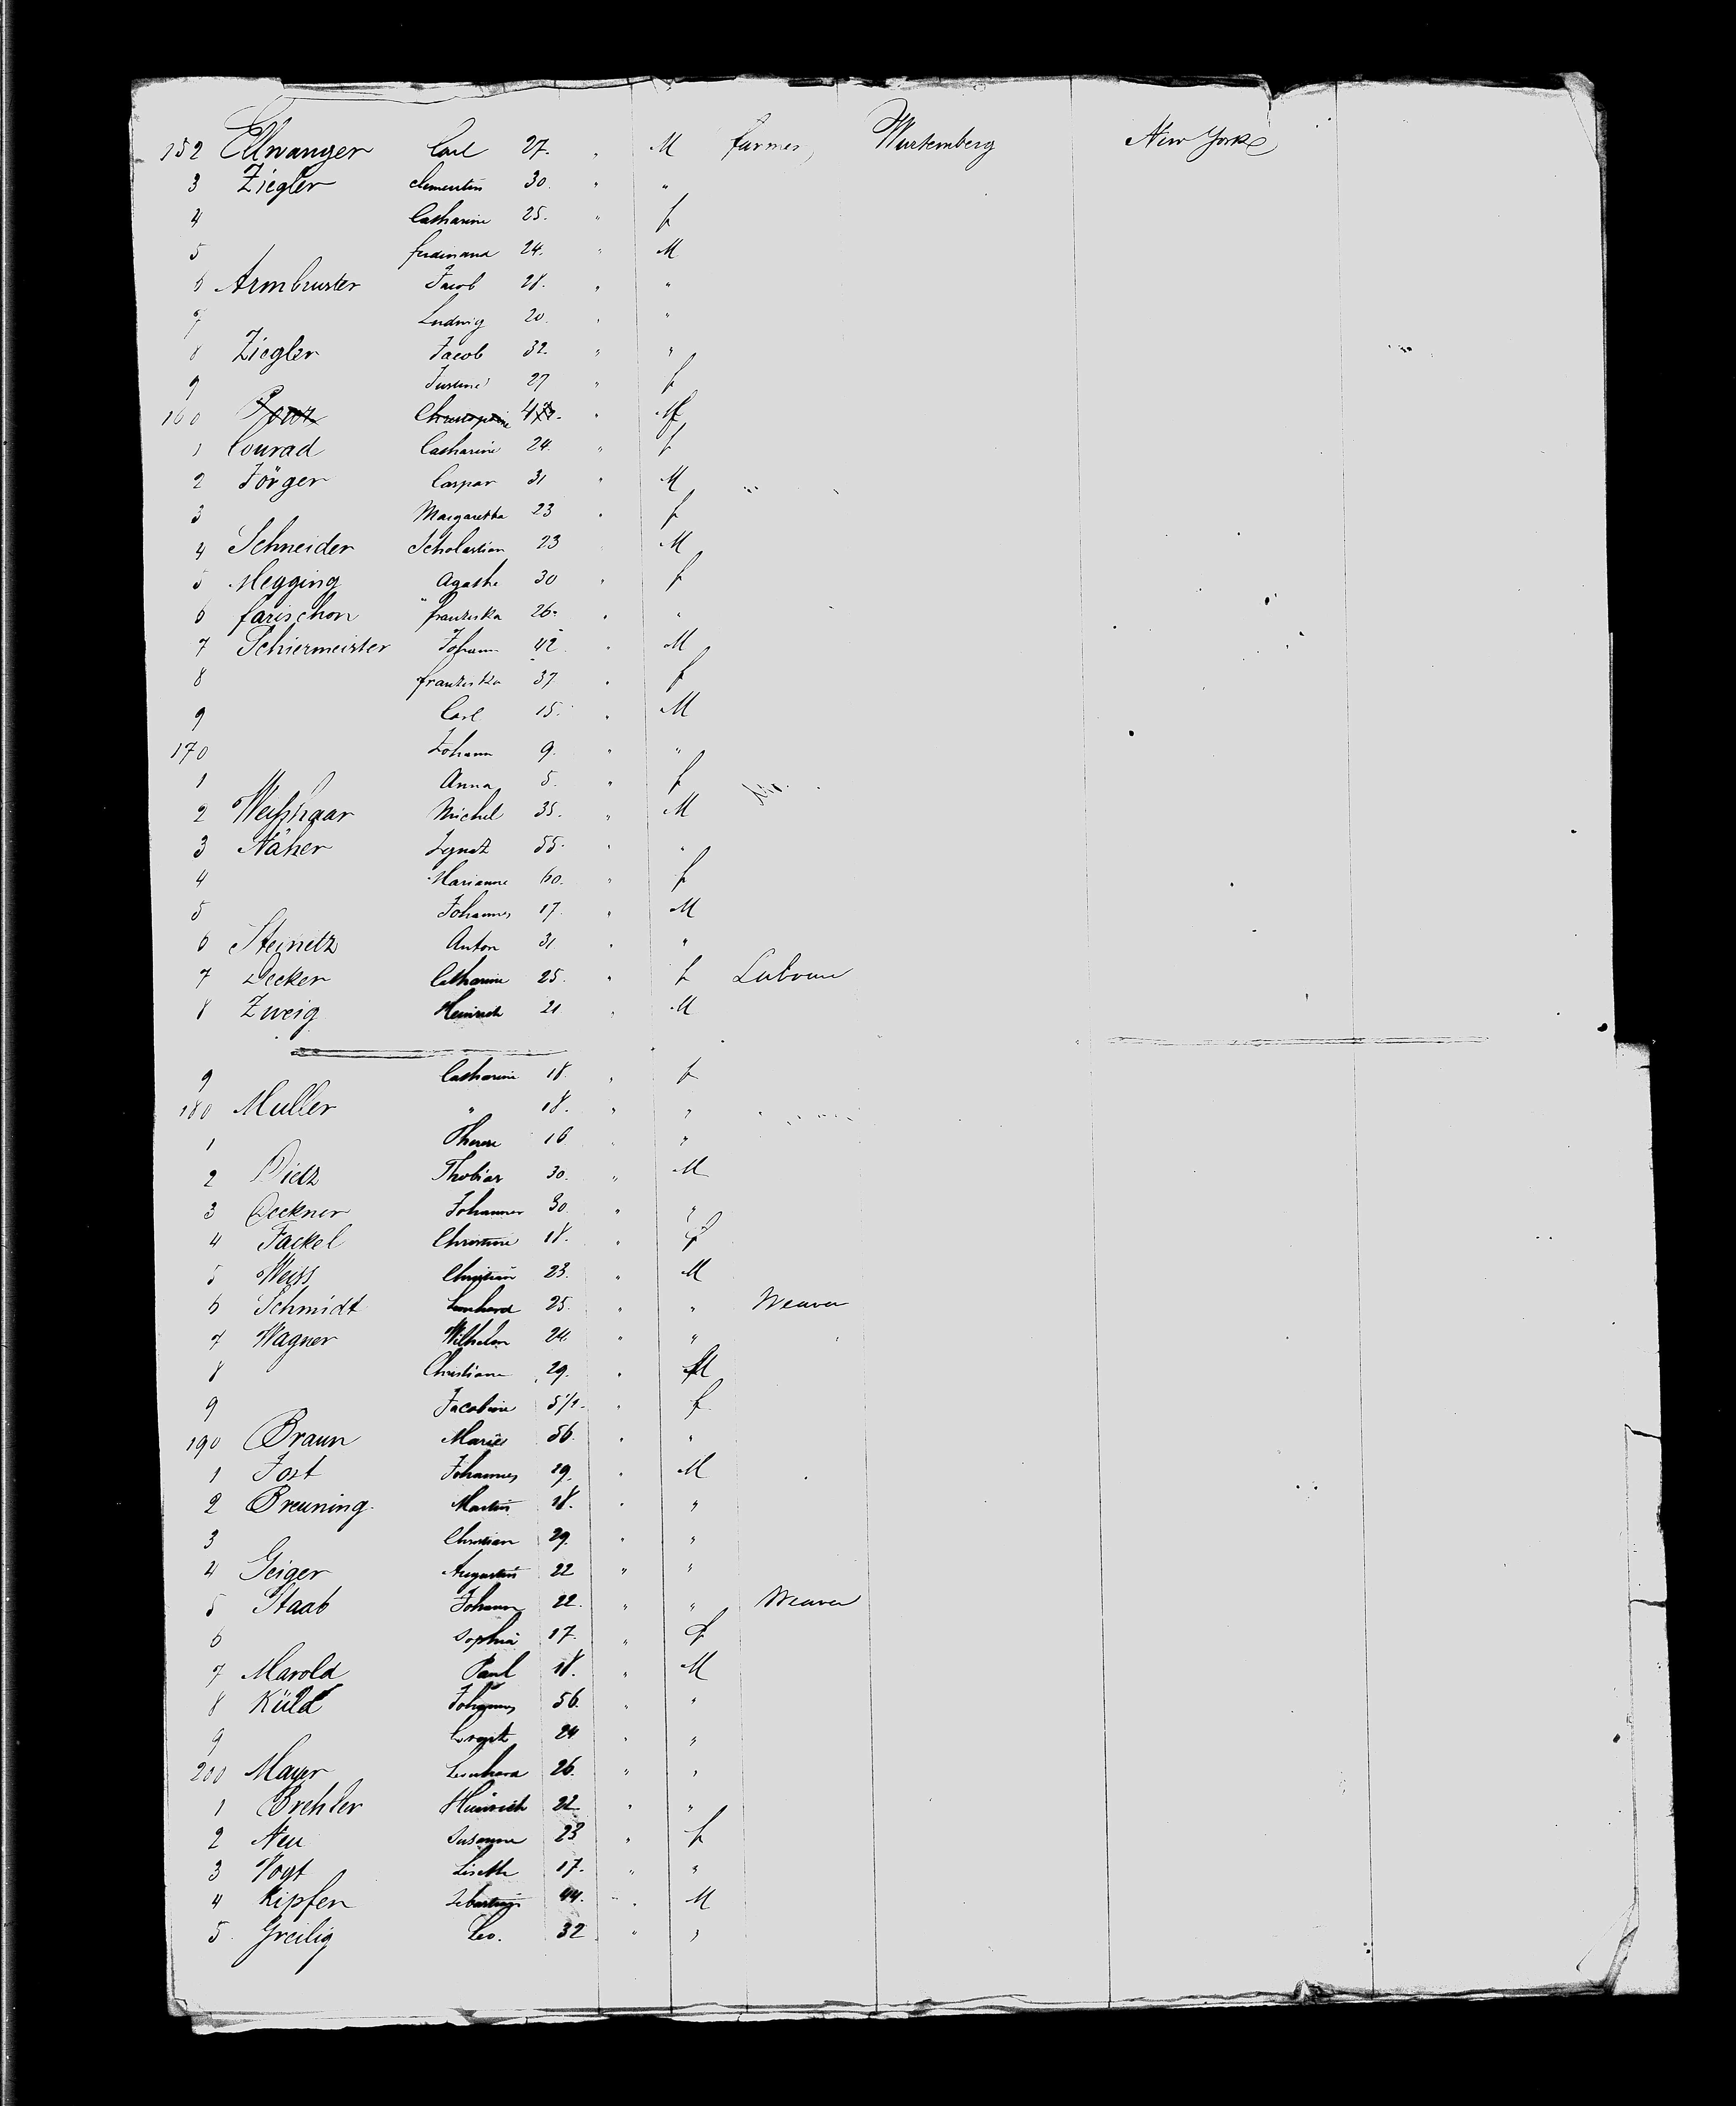 152 Ellwanger Carl 27. " M farmer, Wurtemberg New York
3 Ziegler Clementin 30. " "
4 Catharine 25. " f
5 ferdinand 24. " M
6 Armbruster Jacob 28. " "
7 Ludwig 20. " "
8 Ziegler Jacob 32. " "
9 Justine 27 " f
160 "
1 Conrad Catharine 24. " f
2 Jörger Caspar 31 " M
3 Margaretha 23 " f
4 Schneider Scholastica 23 M
5 Megging Agathe 30 " f
6 farischon franziska 26. " "
7 Schiermeister Johann 42. " M
8 franziska 37 " f
9 Carl 15. " M
170 Johann 9. " "
1 Anna 5. " f
2 Weisshaar Michel 35. " M
3 Näher Ignatz 55. " "
4 Marianne 60. " f
5 Johannes 17. " M
6 Steinetz Anton 31 " "
7 Decker Catharine 25. " f
8 Zweig Heinrich 21 " M
9 Catharine 18. " f
180 Muller " 18. " "
1 Therese 16 " "
2 Dietz Thobias 30. " M
3 Deckner Johannes 30 " "
4 Fackel Christine 18. " f
5 Weiss Christian 23. " M
6 Schmidt Leonhard 25. " " Weaver
7 Wagner Wilhelm 24 " "
8 Christiane 29. "
9 Jacobine 5 " f
190 Braun Marie 56. " "
1 Jost Johannes 19. " M
2 Breuning Martin 18. " "
3 Christian 29. " "
4 Geiger Augustin 22 " "
5 Staab Johann 22. " " Weaver
6 Sophia 17. " f
7 Marold Paul 18. " M
8 Küld Johannes 56. " "
9 24 " "
200 Mayer Leonhard 26. " "
1 Brehler Heinrich 22 " "
2 Neu Susanne 23 " f
3 Vogt Lisette 17. " "
4 Kipfen Sebastian 44. " M
5 Greilig Leo. 32 " "